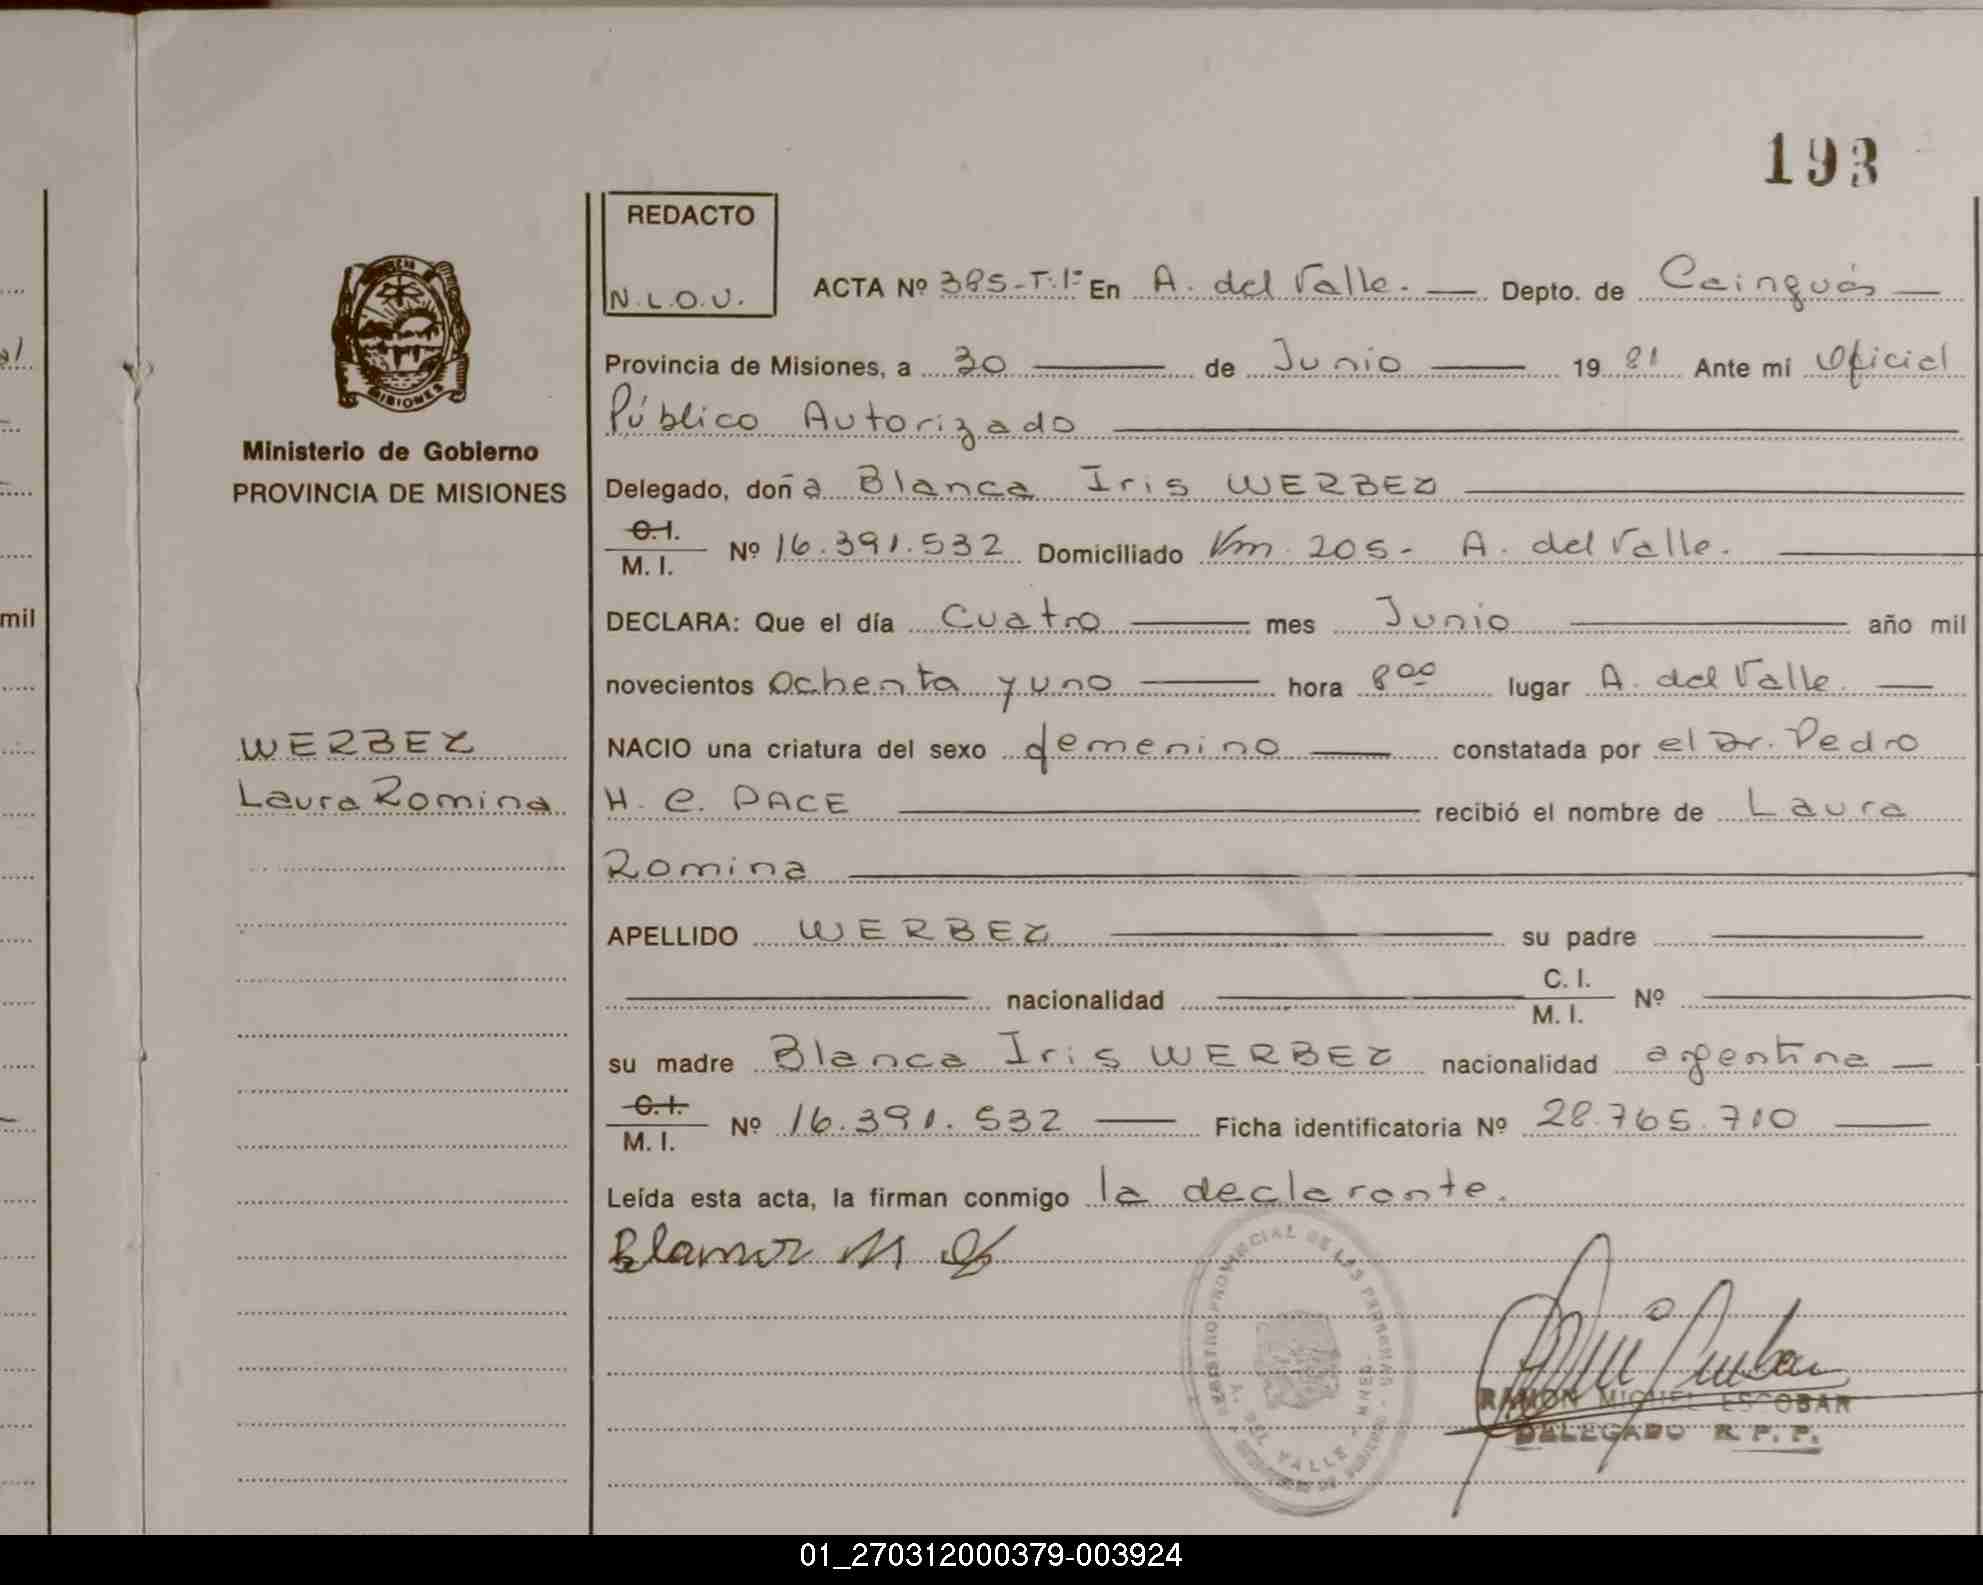 193
REDACTO
N.L.O.U.
ACTA Nº 385-T:1º En A. del Valle. Depto. de Cainguás
Provincia de Misiones, a 30 de Junio 1981 Ante mí Oficial
Público Autorizado
Ministerio de Gobierno
PROVINCIA DE MISIONES
Delegado, doña Blanca Iris WERBEZ
C.I.
M. I. Nº 16.391.532 Domiciliado Km. 205- A. del Valle.
mil
DECLARA: Que el día Cuatro mes Junio año mil
novecientos Ochenta y uno hora 8ºº lugar A. del Valle.
WERBEZ
Laura Romina
NACIO una criatura del sexo femenino constatada por el Dr. Pedro
H. C. PACE recibió el nombre de Laura
Romina
APELLIDO WERBEZ su padre
nacionalidad C. I.
M. I. Nº
su madre Blanca Iris WERBEZ nacionalidad argentina
C.I.
M. I. Nº 16.391.532 Ficha identificatoria Nº 28.765.710
Leída esta acta, la firman conmigo la declarante.
REGISTRO PROVINCIAL DE LAS PERSONAS
A. DEL VALLE - MNES.
RAMON MIGUEL ESCOBAR
DELEGADO R. P. P.
01_270312000379-003924